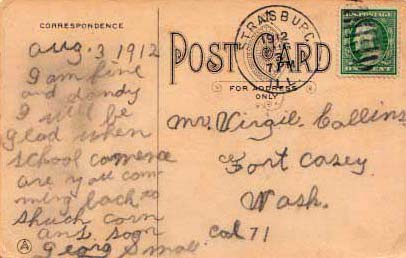 CORRESPONDENCE
Aug. 3 1912
I am fine
and dandy
I will be
glad when
school comence
are you com
ming back to
shuck corn
ans. soon
Georg Small
POST CARD
FOR ADDRESS
ONLY
STRASBURG
1912
7 PM
ILL.
Mr. Virgil Collins
Fort Casey
Wash.
Col 71
A